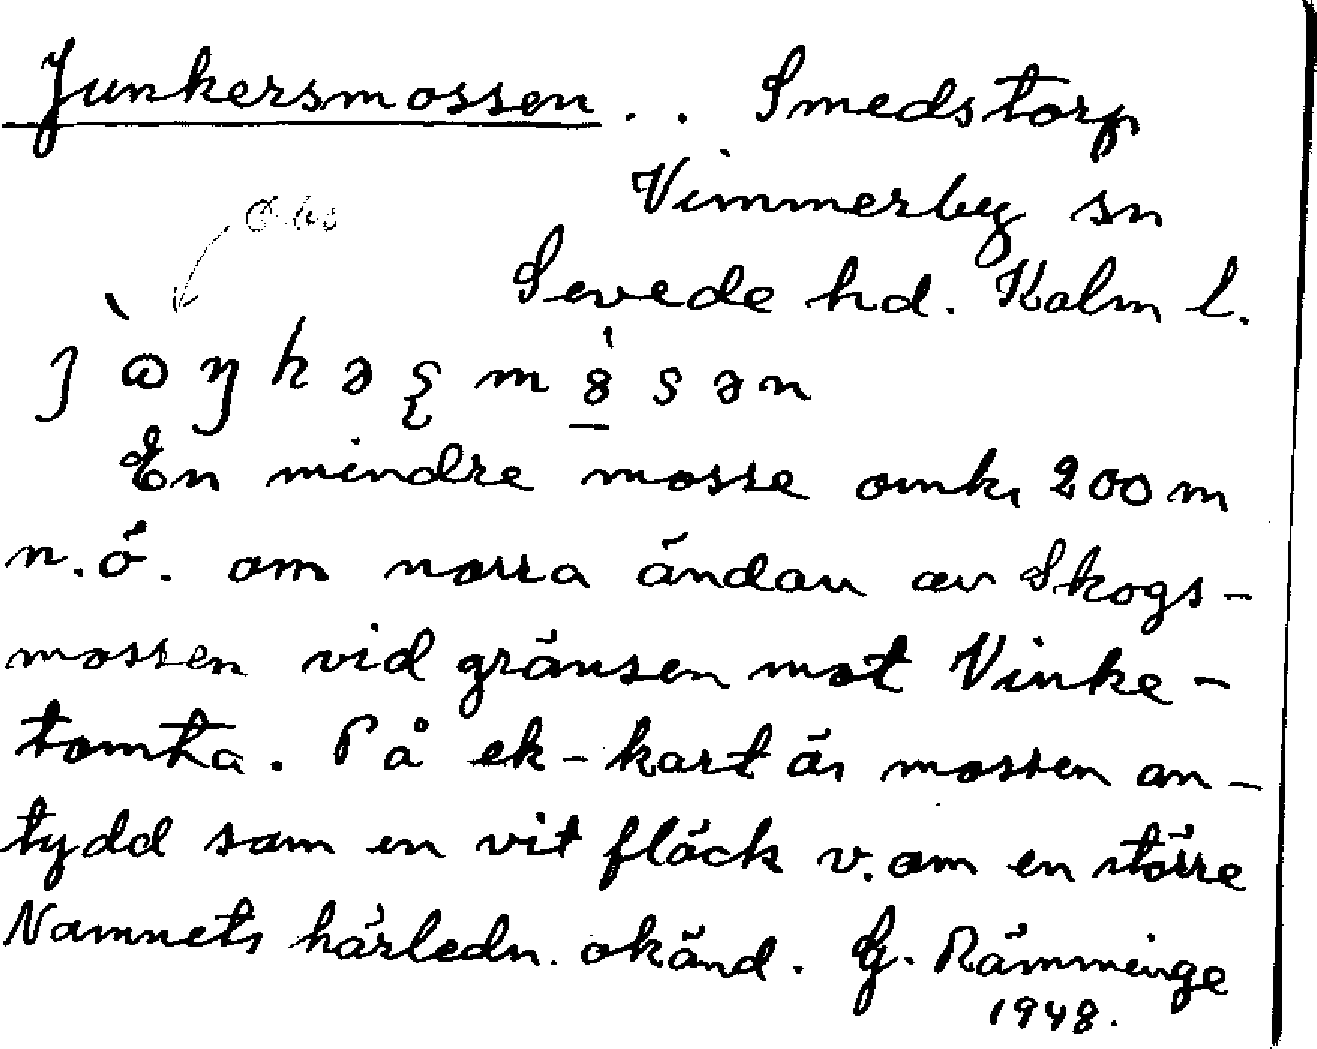 Junkersmossen . . Smedstorp
Vimmerby sn
Obs
Sevede hd. Kalm l.
En mindre mosse omkr 200 m
n.ö. om norra ändan av Skogs-
mossen vid gränsen mot Vinke-
tomta. På ek-kart är mossen an-
tydd som en vit fläck v. om en större
Namnets härledn. okänd. G. Rämminge
1948.